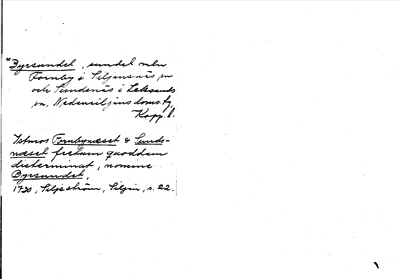 *Byrsundet, sundet mln
Fornby i Siljansnäs sn
och Sundsnäs i Leksands
sn, Nedansiljans doms. tg,
Kopp. l.
Istmos Fornbynæset & Sunds-
næset fretum quoddam
disterminat, nomine
Byrsundet.
1730, Siljeström, Siljan, s. 22.